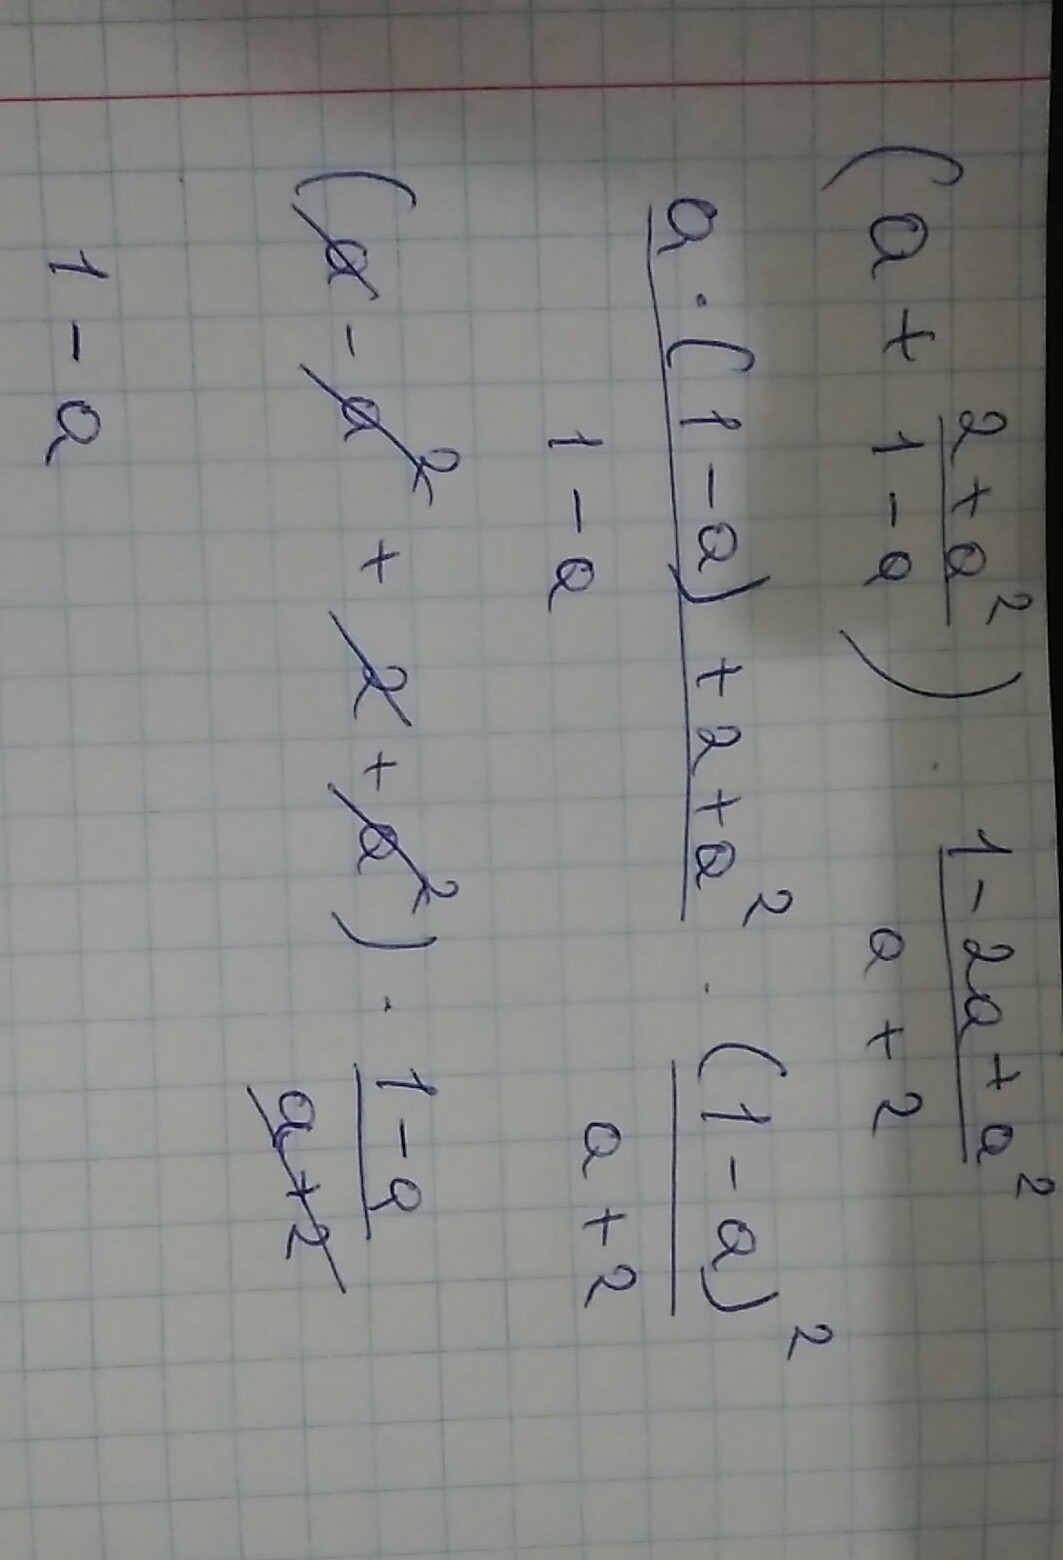 (a + \frac{2+a^2}{1-a}) \cdot \frac{1-2a+a^2}{a+2}
\frac{a \cdot (1-a) + 2 + a^2}{1-a} \cdot \frac{(1-a)^2}{a+2}
(a - a^2 + 2 + a^2) \cdot \frac{1-a}{a+2}
1 - a